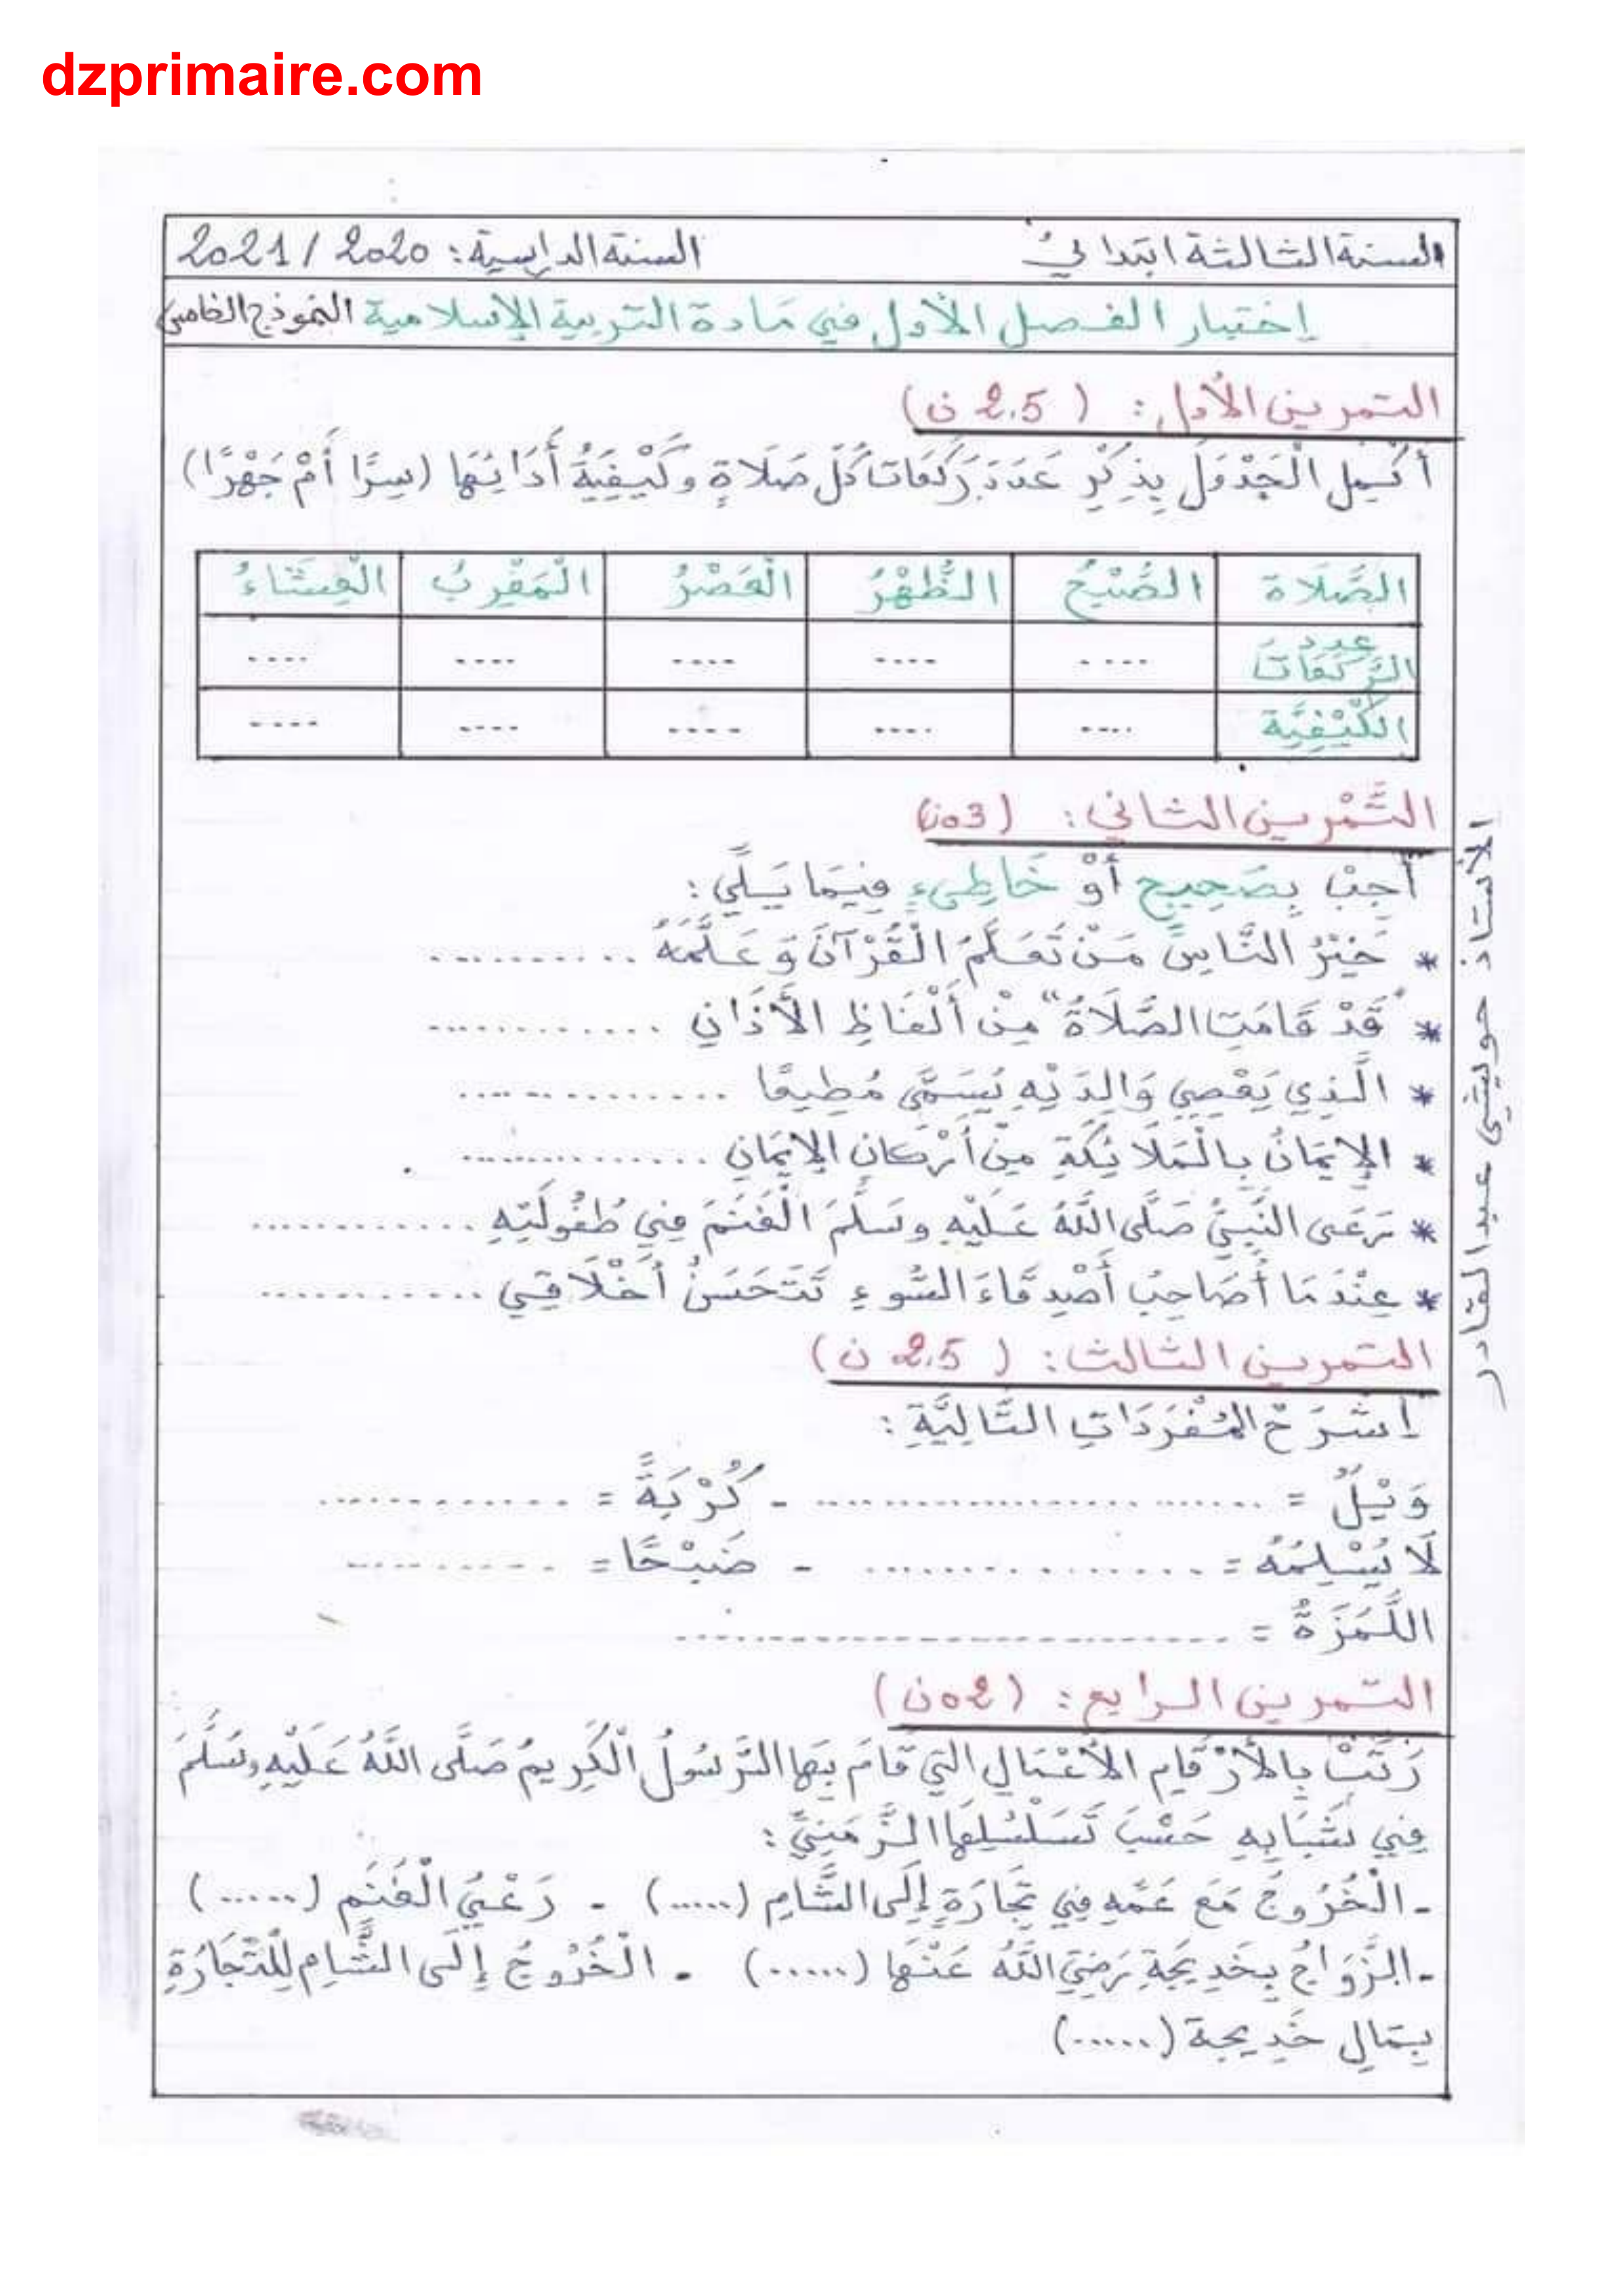 dzprimaire.com
السنة الثالثة ابتدائي السنة الدراسية: 2020 / 2021
إختبار الفصل الأول في مادة التربية الإسلامية النموذج الخامس
التمرين الأول: ( 2.5 ن)
أَكْمِلِ الْجَدْوَلَ بِذِكْرِ عَدَدَ رَكَعَاتِ كُلِّ صَلَاةٍ وكَيْفِيَةُ أَدَائِهَا (سِرًّا أَمْ جَهْرًا)
الصَّلَاة الصُّبْحُ الظُّهْرُ الْعَصْرُ الْمَغْرِبُ الْعِشَاءُ
عدد الرَّكَعَاتَ .... .... .... .... ....
الكَيْفِيَّة .... .... .... .... ....
التَّمْرين الثاني: (03ن)
أَجِبْ بِصَحِيحٍ أَوْ خَاطِىءٍ فِيمَا يَلِي:
* خَيْرُ النَّاسِ مَنْ تَعَلَّمَ الْقُرْآنَ وَ عَلَّمَهُ ..........
* "قَدْ قَامَتِ الصَّلَاةُ" مِنْ أَلْفَاظِ الْأَذَانِ ............
* الَّذِي يَعْصِي وَالِدَيْهِ يُسَمَّى مُطِيعًا ..............
* الإِيمَانُ بِالْمَلَائِكَةِ مِنْ أَرْكَانِ الإِيمَانِ ..............
* رَعَى النَّبِيُّ صَلَّى اللَّهُ عَلَيْهِ وسَلَّمَ الْغَنَمَ فِي طُفُولَتِهِ ............
* عِنْدَمَا أُصَاحِبُ أَصْدِقَاءَ السُّوءِ تَتَحَسَنُ أَخْلَاقِي ............
التمرين الثالث: ( 2.5 ن)
اِشْرَحْ الْمُفْرَدَاتِ التَّالِيَّةِ:
وَيْلٌ = ........................ - كُرْبَةً = .............
لَا يُسْلِمُهُ = ................ - ضَبْحًا = ..........
اللُّمَزَةُ = ..........................
التمرين الرابع: (02ن)
رَتِّبْ بِالأَرْقَامِ الأَعْمَالِ التي قَامَ بِهَا الرَّسُولُ الْكَرِيمُ صَلَّى اللَّهُ عَلَيْهِ وسَلَّمَ
فِي شَبَابِهِ حَسْبَ تَسَلْسُلِهَا الزَّمَنِيِّ:
- الْخُرُوجُ مَعَ عَمِّهِ فِي تِجَارَةٍ إِلَى الشَّامِ (......) - رَعْيُ الْغَنَمِ (......)
- الزَّوَاجُ بِخَدِيجَةِ رَضِيَ اللَّهُ عَنْهَا (......) - الْخُرُوجُ إِلَى الشَّامِ لِلتِّجَارَةِ
بِمَالِ خَدِيجة (......)
الأستاذ حويشي عبد القادر